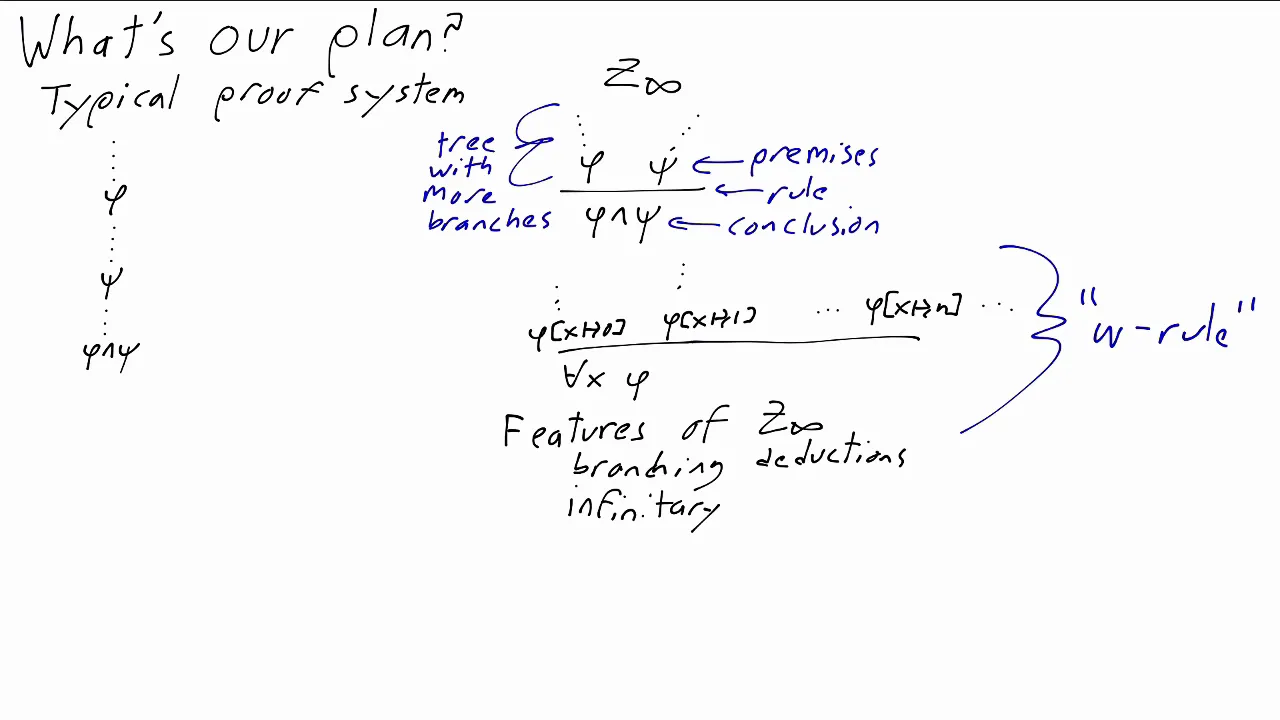 What's our plan?
Typical proof system
⋮
φ
⋮
ψ
⋮
φ∧ψ
Z∞
tree
with
more
branches
φ ψ ← premises
← rule
φ∧ψ ← conclusion
φ[x↦0] φ[x↦1] ... φ[x↦n] ...
∀x φ
"ω-rule"
Features of Z∞
branching deductions
infinitary